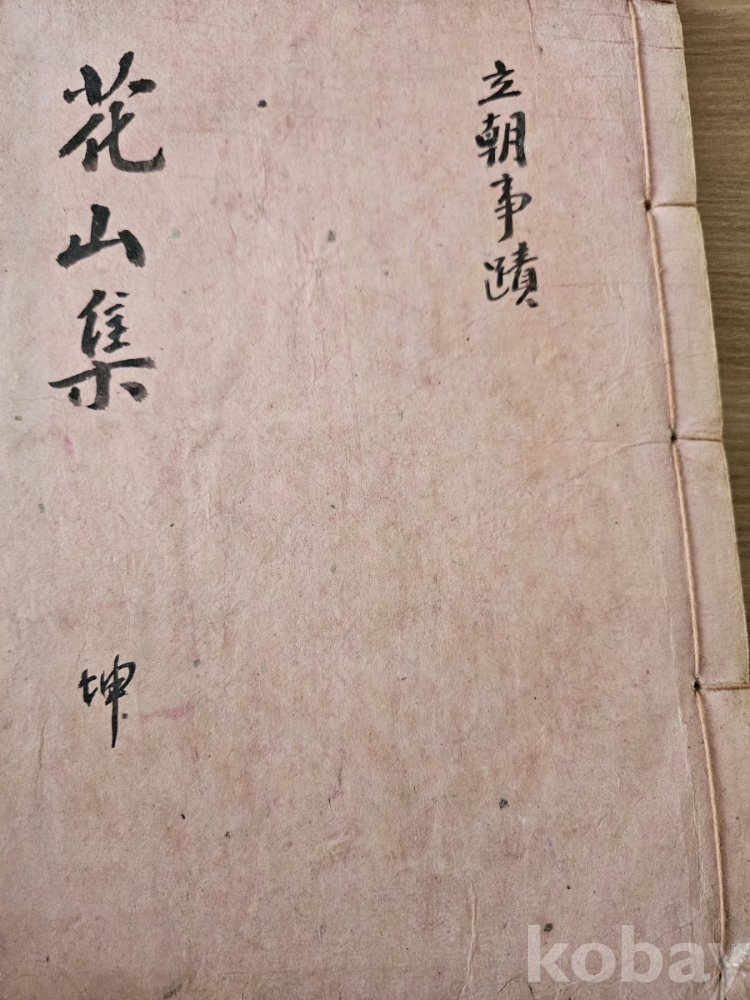 立朝事蹟
花山集
坤
kobay